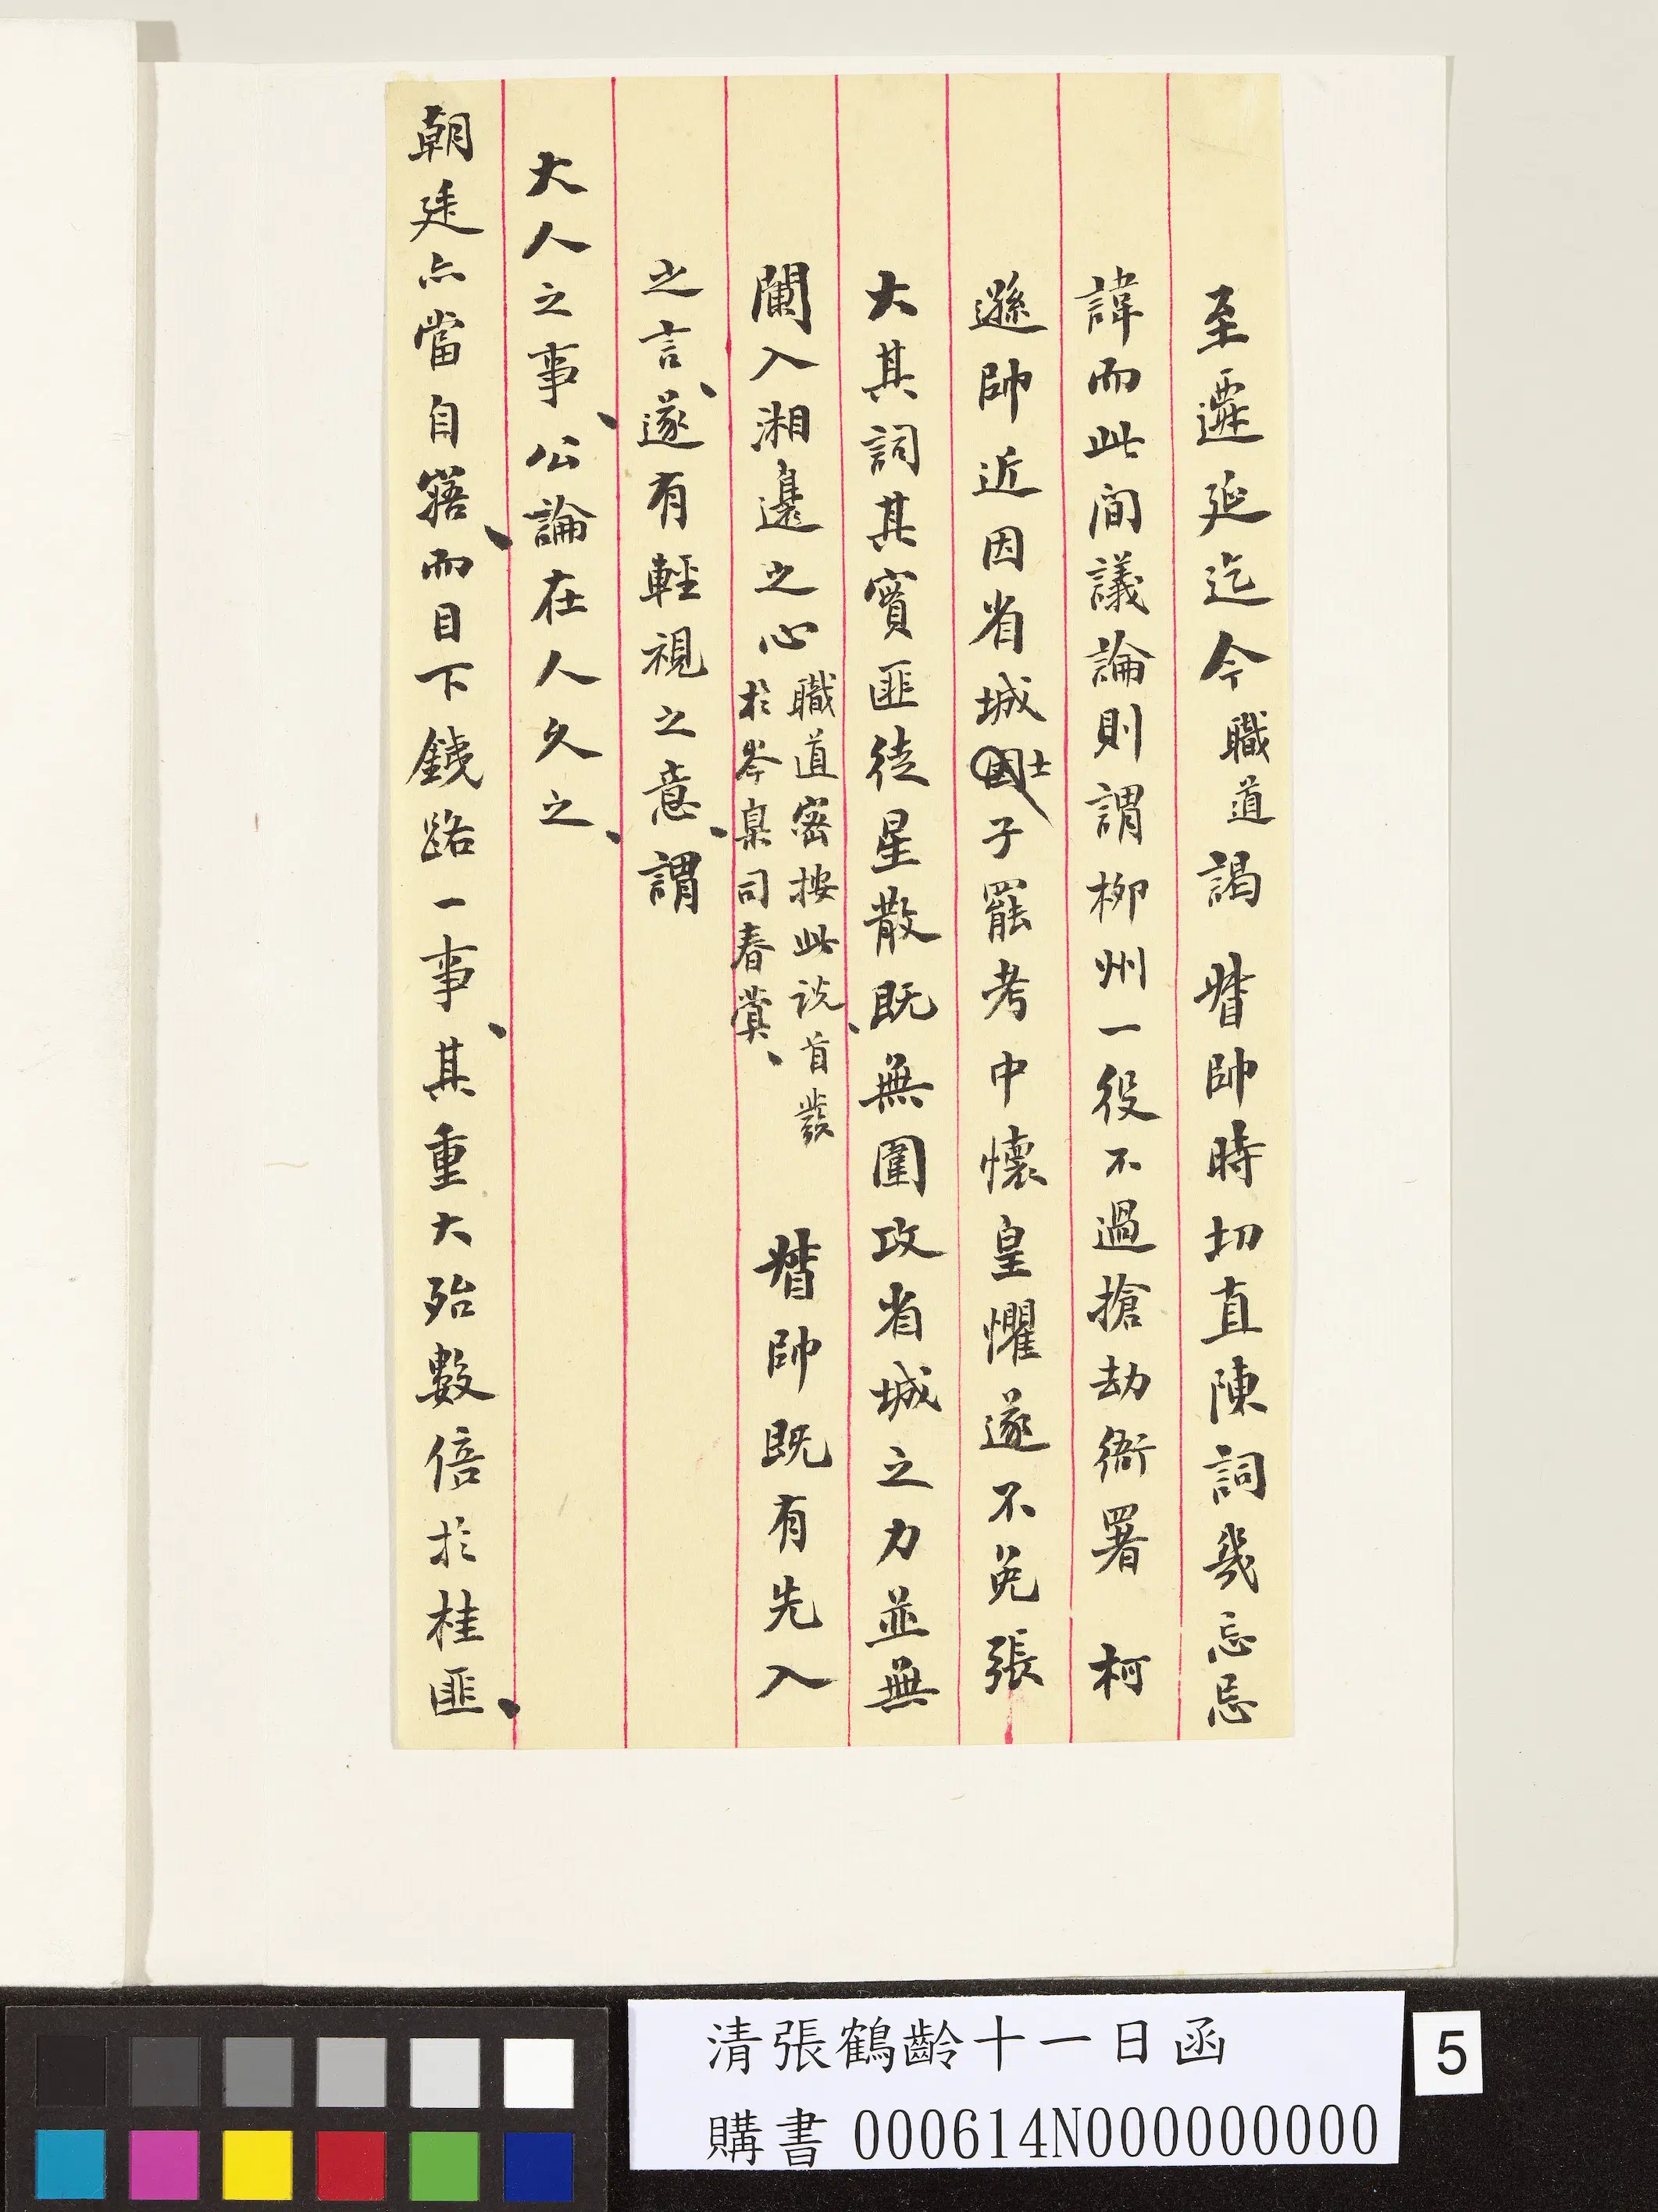 至遷延迄今職道謁 督帥時切直陳詞幾忘忌
諱而此間議論則謂柳州一役不過搶劫衙署 柯
遜帥近因省城士子罷考中懷皇懼遂不免張
大其詞其實匪徒星散既無圍攻省城之力並無
闌入湘邊之心
職道密按此説、首發
於岑臬司春蓂、
督帥既有先入
之言、遂有輕視之意、謂
大人之事、公論在人久之、
朝廷亦當自寤、而目下銕路一事、其重大殆數倍於桂匪、
清張鶴齡十一日函
購書 000614N000000000
5